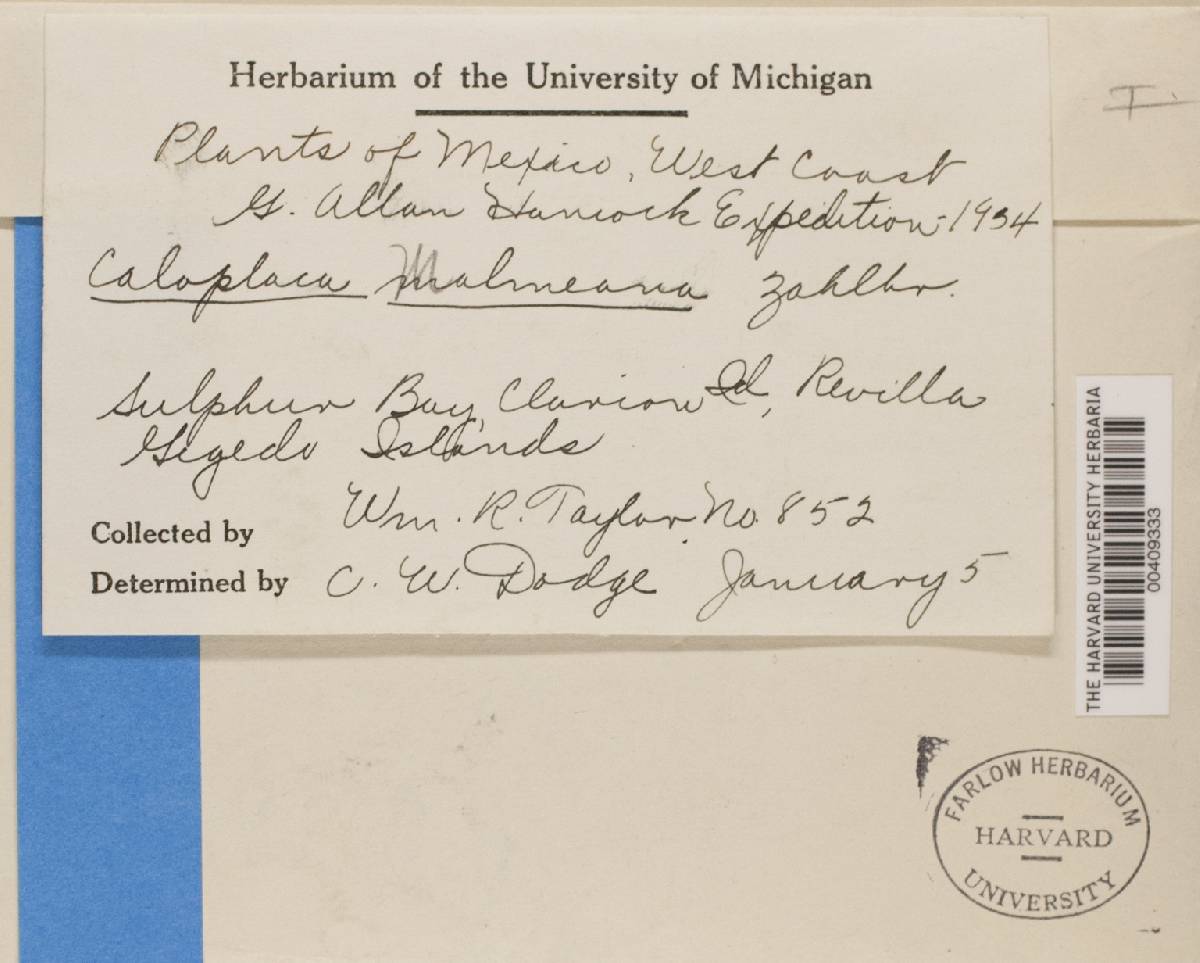 Herbarium of the University of Michigan
Plants of Mexico, West Coast
G. Allan Hancock Expedition-1934
Caloplaca Malmeana Zahlbr.
Sulphur Bay, Clarion Id, Revilla
Gigedo Islands
Collected by Wm. R. Taylor No. 852
Determined by C. W. Dodge January 5
T
THE HARVARD UNIVERSITY HERBARIA
00409333
FARLOW HERBARIUM
HARVARD
UNIVERSITY